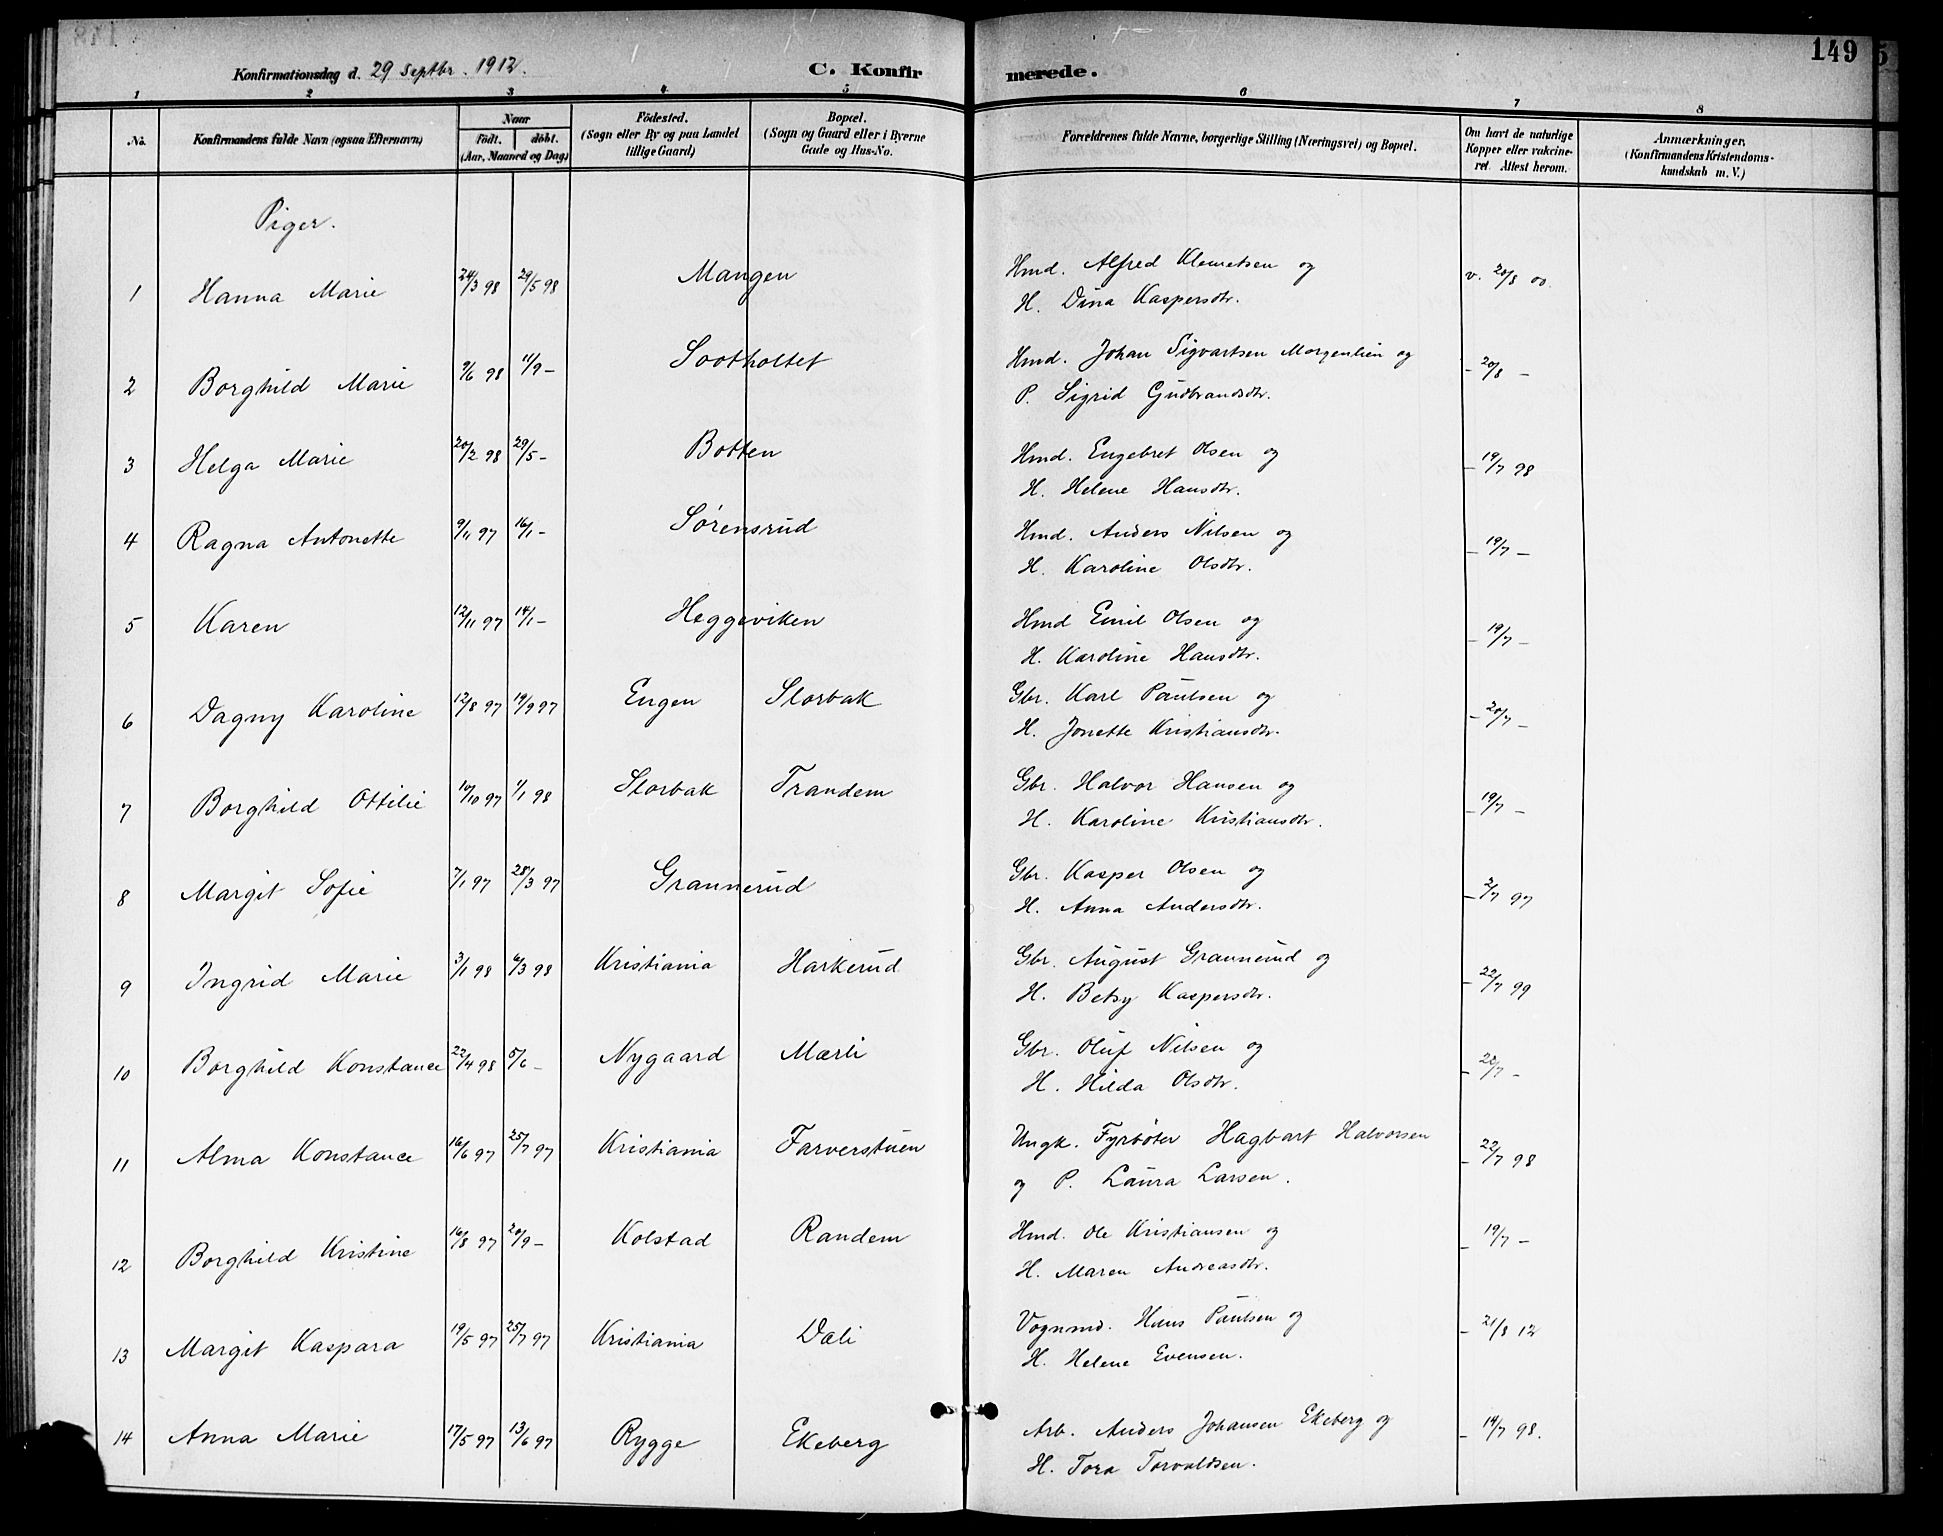 149
Konfirmationsdag d. 29 Septbr. 1912. C. Konfirmerede.
1 2 3 4 5 6 7 8
No. Konfirmandens fulde Navn (ogsaa Efternavn) Naar født. døbt. (Aar, Maaned og Dag) Fødested. (Sogn eller By og paa Landet tillige Gaard) Bopæl. (Sogn og Gaard eller i Byerne Gade og Hus-No. Forældrenes fulde Navne, borgerlige Stilling (Næringsvei) og Bopæl. Om havt de naturlige Kopper eller vakcineret. Attest herom. Anmærkninger. (Konfirmandens Kristendomskundskab m. V.)
Piger.
1 Hanna Marie 24/3 98 29/5 98 Mangen Hmd. Alfred Klemetsen og v. 20/8 00.
H. Dina Kaspersdtr.
2 Borghild Marie 9/6 98 11/9 – Sootholtet Hmd. Johan Sigvartsen Morgenlien og – 20/8 –
P. Sigrid Gudbrandsdtr.
3 Helga Marie 20/2 98 29/5 – Botten Hmd. Engebret Olsen og – 19/7 98
H. Helene Hansdtr.
4 Ragna Antonette 9/11 97 16/1 – Sørensrud Hmd. Anders Nilsen og – 19/7 –
H. Karoline Olsdtr.
5 Karen 12/11 97 14/1 – Heggeviken Hmd Emil Olsen og – 19/7 –
H. Karoline Hansdtr.
6 Dagny Karoline 12/8 97 19/9 97 Engen Slorbak Gbr. Karl Paulsen og – 20/7 –
H. Jonette Kristiansdtr.
7 Borghild Ottilie 10/10 97 1/1 98 Slorbak Trandem Gbr. Halvor Hansen og – 19/7 –
H. Karoline Kristiansdtr.
8 Margit Sofie 7/1 97 28/3 97 Grannerud Gbr. Kasper Olsen og – 2/7 97
H. Anna Andersdtr.
9 Ingrid Marie 3/1 98 6/3 98 Kristiania Harkerud Gbr. August Grannerud og – 22/7 99
H. Betsy Kaspersdtr.
10 Borghild Konstance 22/4 98 5/6 – Nygaard Mærli Gbr. Oluf Nilsen og – 22/7 –
H. Hilda Olsdtr.
11 Alma Konstance 16/6 97 25/7 97 Kristiania Farverstuen Ungk. Fyrbøter Hagbart Halvorsen – 22/7 98
og P. Laura Larsen.
12 Borghild Kristine 16/8 97 20/9 – Kolstad Randem Hmd. Ole Kristiansen og – 19/7 –
H. Maren Andreasdtr.
13 Margit Kaspara 19/5 97 25/7 97 Kristiania Dæli Vognmd. Hans Paulsen og – 21/8 12
H. Helene Evensen.
14 Anna Marie 17/5 97 13/6 97 Rygge Ekeberg Arb. Anders Johansen Ekeberg og – 14/7 98.
H. Tora Torvaldsen.